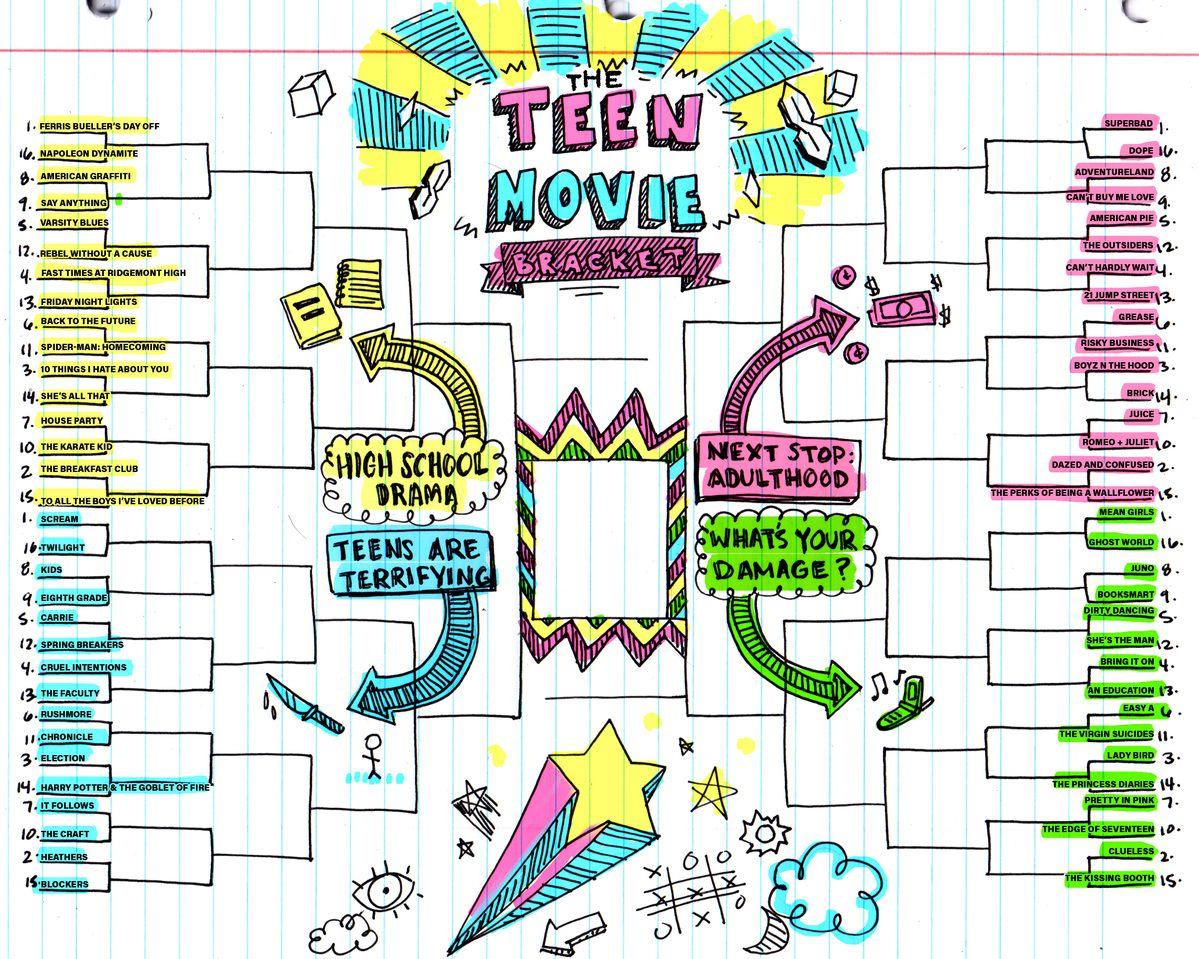 THE
TEEN
MOVIE
BRACKET
1. FERRIS BUELLER'S DAY OFF
16. NAPOLEON DYNAMITE
8. AMERICAN GRAFFITI
9. SAY ANYTHING
5. VARSITY BLUES
12. REBEL WITHOUT A CAUSE
4. FAST TIMES AT RIDGEMONT HIGH
13. FRIDAY NIGHT LIGHTS
6. BACK TO THE FUTURE
11. SPIDER-MAN: HOMECOMING
3. 10 THINGS I HATE ABOUT YOU
14. SHE'S ALL THAT
7. HOUSE PARTY
10. THE KARATE KID
2 THE BREAKFAST CLUB
15. TO ALL THE BOYS I'VE LOVED BEFORE
HIGH SCHOOL
DRAMA
1. SCREAM
16. TWILIGHT
8. KIDS
9. EIGHTH GRADE
5. CARRIE
12. SPRING BREAKERS
4. CRUEL INTENTIONS
13. THE FACULTY
6. RUSHMORE
11. CHRONICLE
3. ELECTION
14. HARRY POTTER & THE GOBLET OF FIRE
7. IT FOLLOWS
10. THE CRAFT
2. HEATHERS
15. BLOCKERS
TEENS ARE
TERRIFYING
SUPERBAD 1.
DOPE 16.
ADVENTURELAND 8.
CAN'T BUY ME LOVE 9.
AMERICAN PIE 5.
THE OUTSIDERS 12.
CAN'T HARDLY WAIT 4.
21 JUMP STREET 13.
GREASE 6.
RISKY BUSINESS 11.
BOYZ N THE HOOD 3.
BRICK 14.
JUICE 7.
ROMEO + JULIET 10.
DAZED AND CONFUSED 2.
THE PERKS OF BEING A WALLFLOWER 15.
NEXT STOP:
ADULTHOOD
MEAN GIRLS 1.
GHOST WORLD 16.
JUNO 8.
BOOKSMART 9.
DIRTY DANCING 5.
SHE'S THE MAN 12.
BRING IT ON 4.
AN EDUCATION 13.
EASY A 6
THE VIRGIN SUICIDES 11.
LADY BIRD 3.
THE PRINCESS DIARIES 14.
PRETTY IN PINK 7.
THE EDGE OF SEVENTEEN 10.
CLUELESS 2.
THE KISSING BOOTH 15.
WHAT'S YOUR
DAMAGE?
X O O
X X
O X O